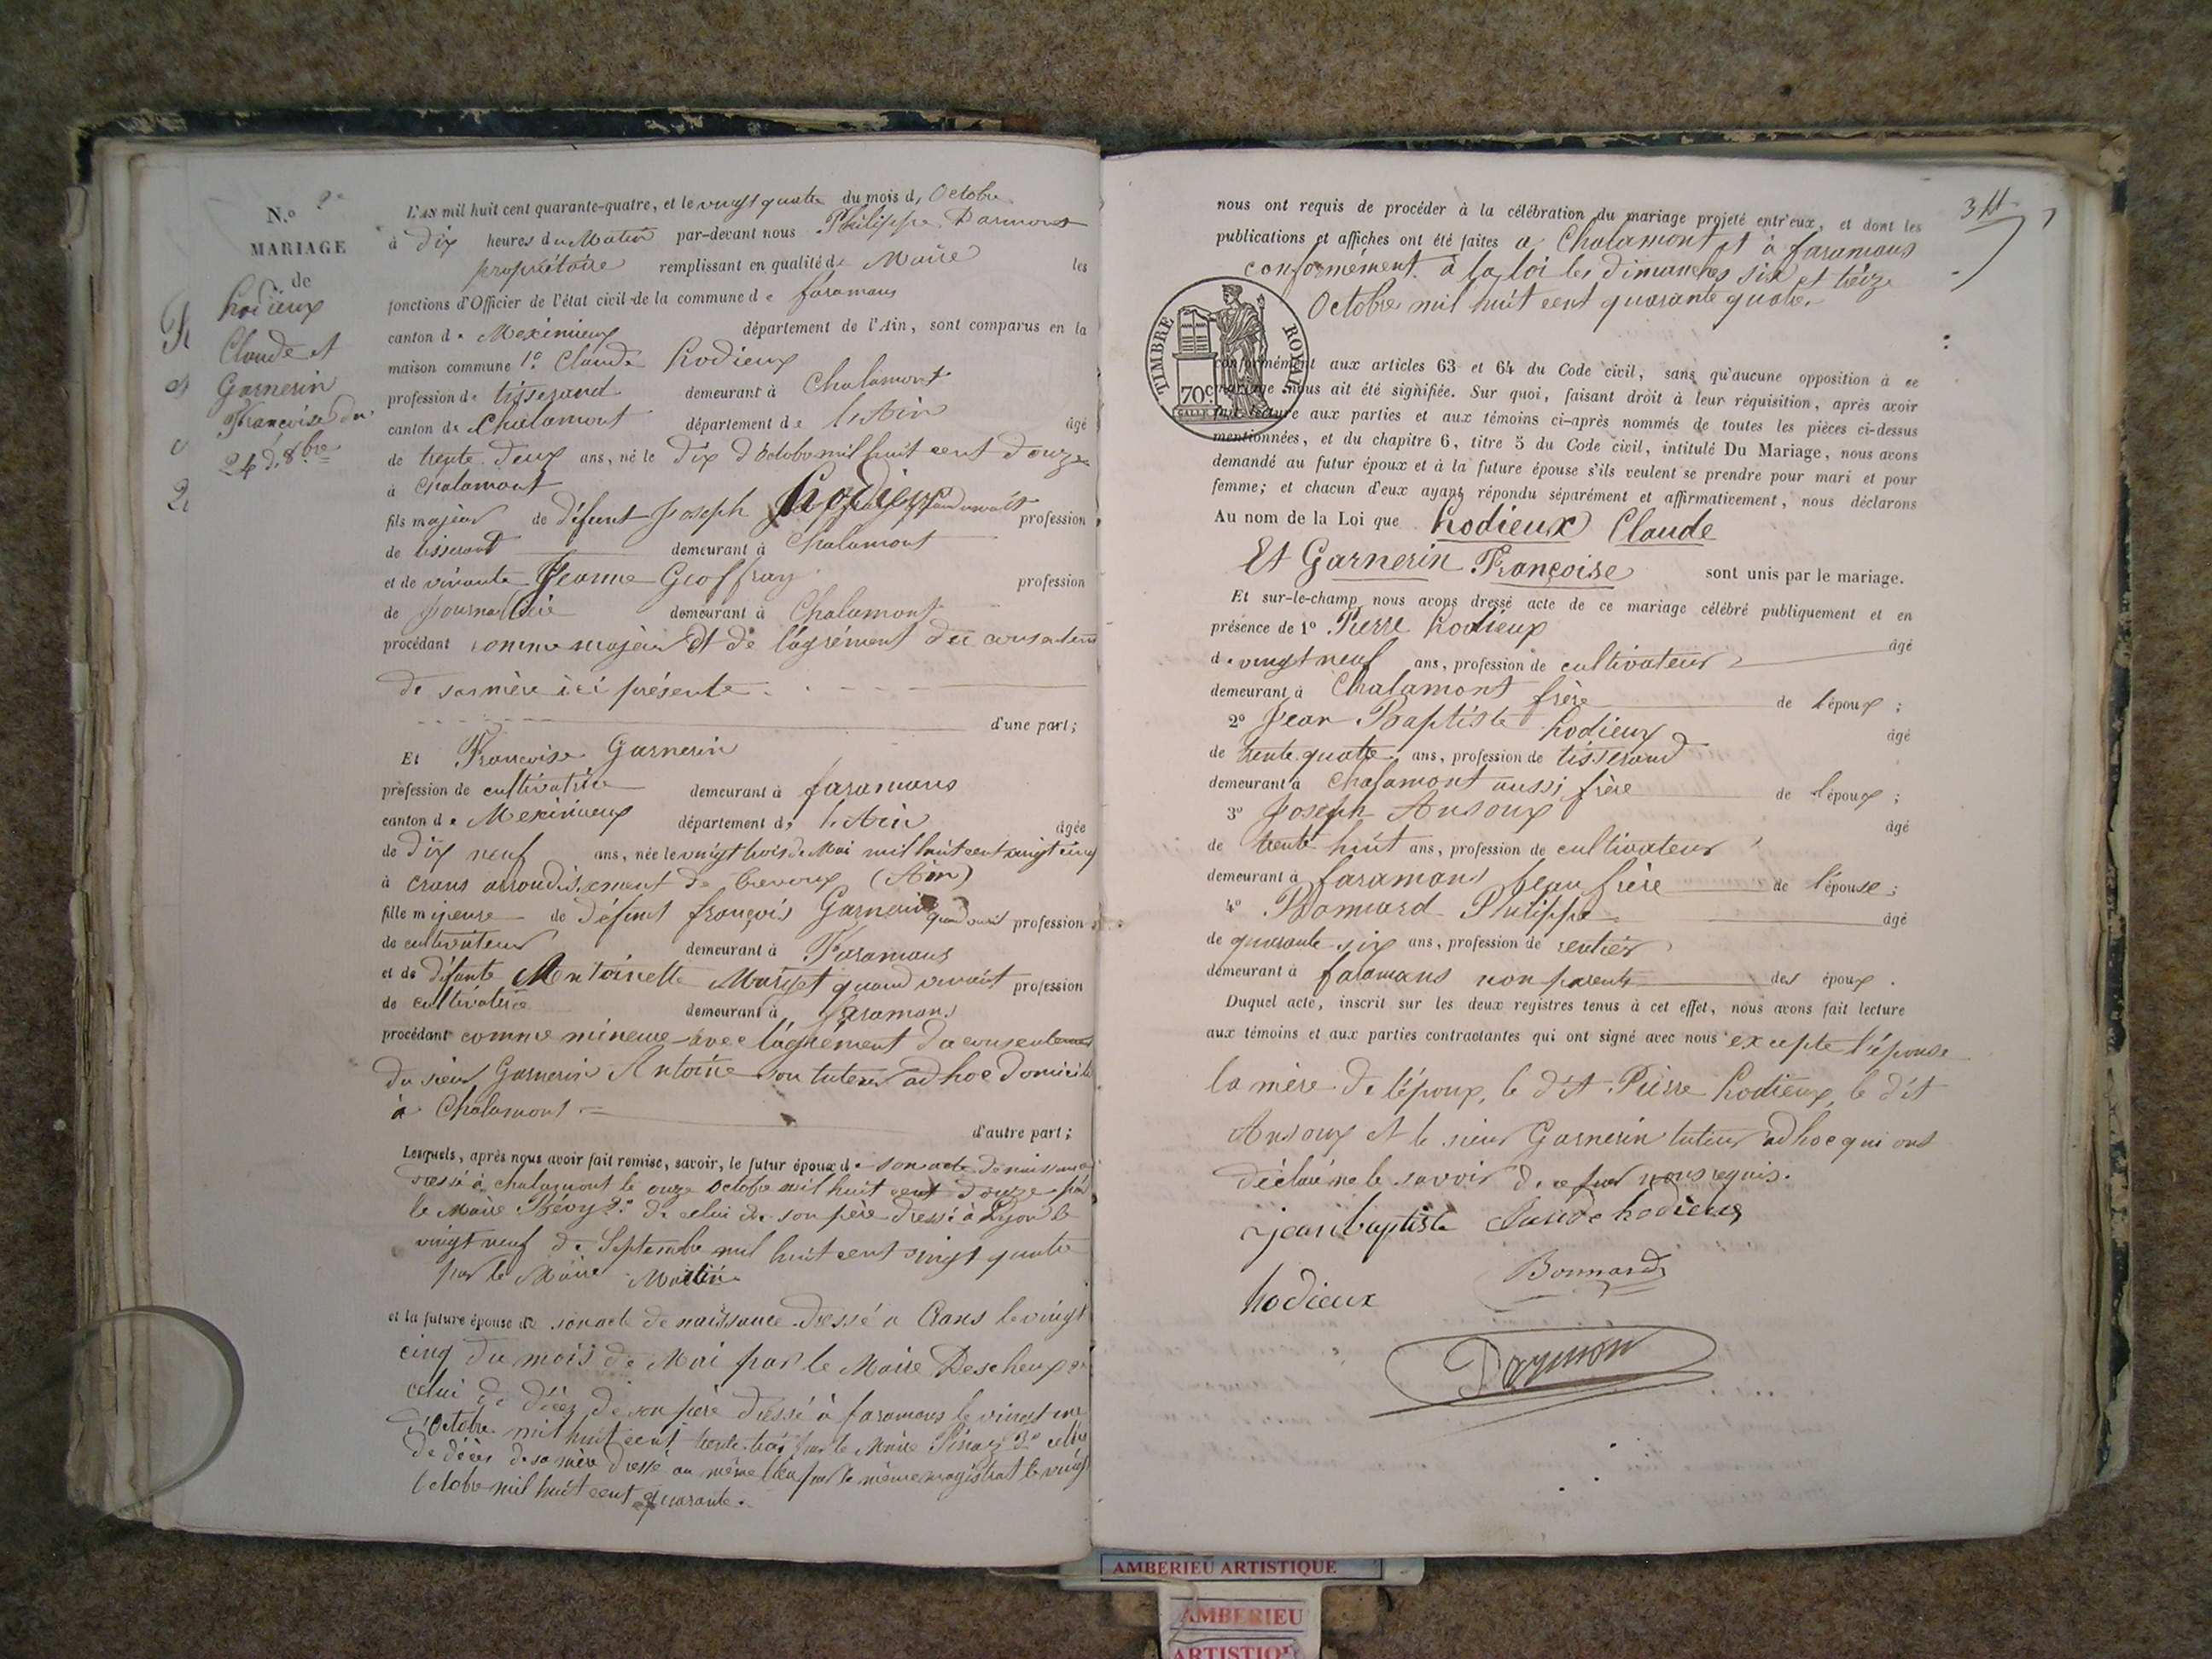 N.o
MARIAGE
de
hodieux
Claude et
Garnerin
Françoise du
24 d. 8bre
L'AN mil huit cent quarante-quatre, et le vingt quatre du mois d, Octobre
à dix heures du Matin par-devant nous Philippe Darmont
propriétaire remplissant en qualité de Maire les
fonctions d'Officier de l'état civil de la commune de faramans
canton de Meximieux département de l'Ain, sont comparus en la
maison commune 1.o Claude hodieux
profession de tisserand demeurant à Chalamont
canton de Chalamont département de l'Ain âgé
de trente deux ans, né le dix d'Octobre mil huit cent douze
à Chalamont
fils majeur de défunt Joseph hodieux quand vivait profession
de tisserand demeurant à Chalamont
et de vivante Jeanne Geoffray profession
de journalière demeurant à Chalamont
procédant comme majeur Et de l'agrément du consentem
de sa mère ici présente.
d'une part;
Et Françoise Garnerin
profession de cultivatrice demeurant à faramans
canton de Meximieux département d, l'Ain âgée
de dix neuf ans, née le vingt trois de Mai mil huit cent vingt cinq
à Crans arrondissement de Trevoux (Ain)
fille mineure de défunt françois Garnerin quand vivait profession
de cultivateur demeurant à Faramans
et de défunte Antoinette quand vivait profession
de cultivatrice demeurant à faramans
procédant comme mineure avec l'agrément du consentement
du sieur Garnerin Antoine son tuteur ad hoc domicilié
à Chalamont
d'autre part;
Lesquels, après nous avoir fait remise, savoir, le futur époux de son acte de naissance
dressé à chalamont le onze Octobre mil huit cent douze par
le Maire 2.o de celui de son père dressé à Lyon le
vingt neuf de Septembre mil huit cent vingt quatre
par le Maire
et la future épouse de son acte de naissance dressé à Crans le vingt
cinq du mois de Mai par le Maire Descheux 2o
celui de décès de son père dressé à faramans le vingt un
d'Octobre mil huit cent trente trois par le Maire 3o celui
de décès de sa mère dressé au même lieu par le même magistrat le vingt
Octobre mil huit cent quarante.
nous ont requis de procéder à la célébration du mariage projeté entr'eux, et dont les
publications et affiches ont été faites a Chalamont et à faramans
conformément à la loi les dimanches six et treize
Octobre mil huit cent quarante quatre.
TIMBRE ROYAL
70c
conformément aux articles 63 et 64 du Code civil, sans qu'aucune opposition à ce
mariage nous ait été signifiée. Sur quoi, faisant droit à leur réquisition, après avoir
fait lecture aux parties et aux témoins ci-après nommés de toutes les pièces ci-dessus
mentionnées, et du chapitre 6, titre 5 du Code civil, intitulé Du Mariage, nous avons
demandé au futur époux et à la future épouse s'ils veulent se prendre pour mari et pour
femme; et chacun d'eux ayant répondu séparément et affirmativement, nous déclarons
Au nom de la Loi que hodieux Claude
Et Garnerin Françoise sont unis par le mariage.
Et sur-le-champ nous avons dressé acte de ce mariage célébré publiquement et en
présence de 1o Pierre hodieux âgé
de vingt neuf ans, profession de cultivateur
demeurant à Chalamont frère de l'époux;
2o Jean Baptiste hodieux âgé
de trente quatre ans, profession de tisserand
demeurant à Chalamont aussi frère de l'époux;
3o Joseph Ansoux âgé
de trente huit ans, profession de cultivateur
demeurant à faramans beau frère de l'épouse;
4o Bonnard Philippe âgé
de quarante six ans, profession de rentier
demeurant à faramans non parent des époux.
Duquel acte, inscrit sur les deux registres tenus à cet effet, nous avons fait lecture
aux témoins et aux parties contractantes qui ont signé avec nous excepte l'épouse
la mère de l'époux, le dit Pierre hodieux, le dit
Ansoux et le sieur Garnerin tuteur ad hoc qui ont
déclaré ne le savoir de ce par nous requis.
jean baptiste Claude hodieux
hodieux Bonnard
AMBERIEU ARTISTIQUE
AMBERIEU